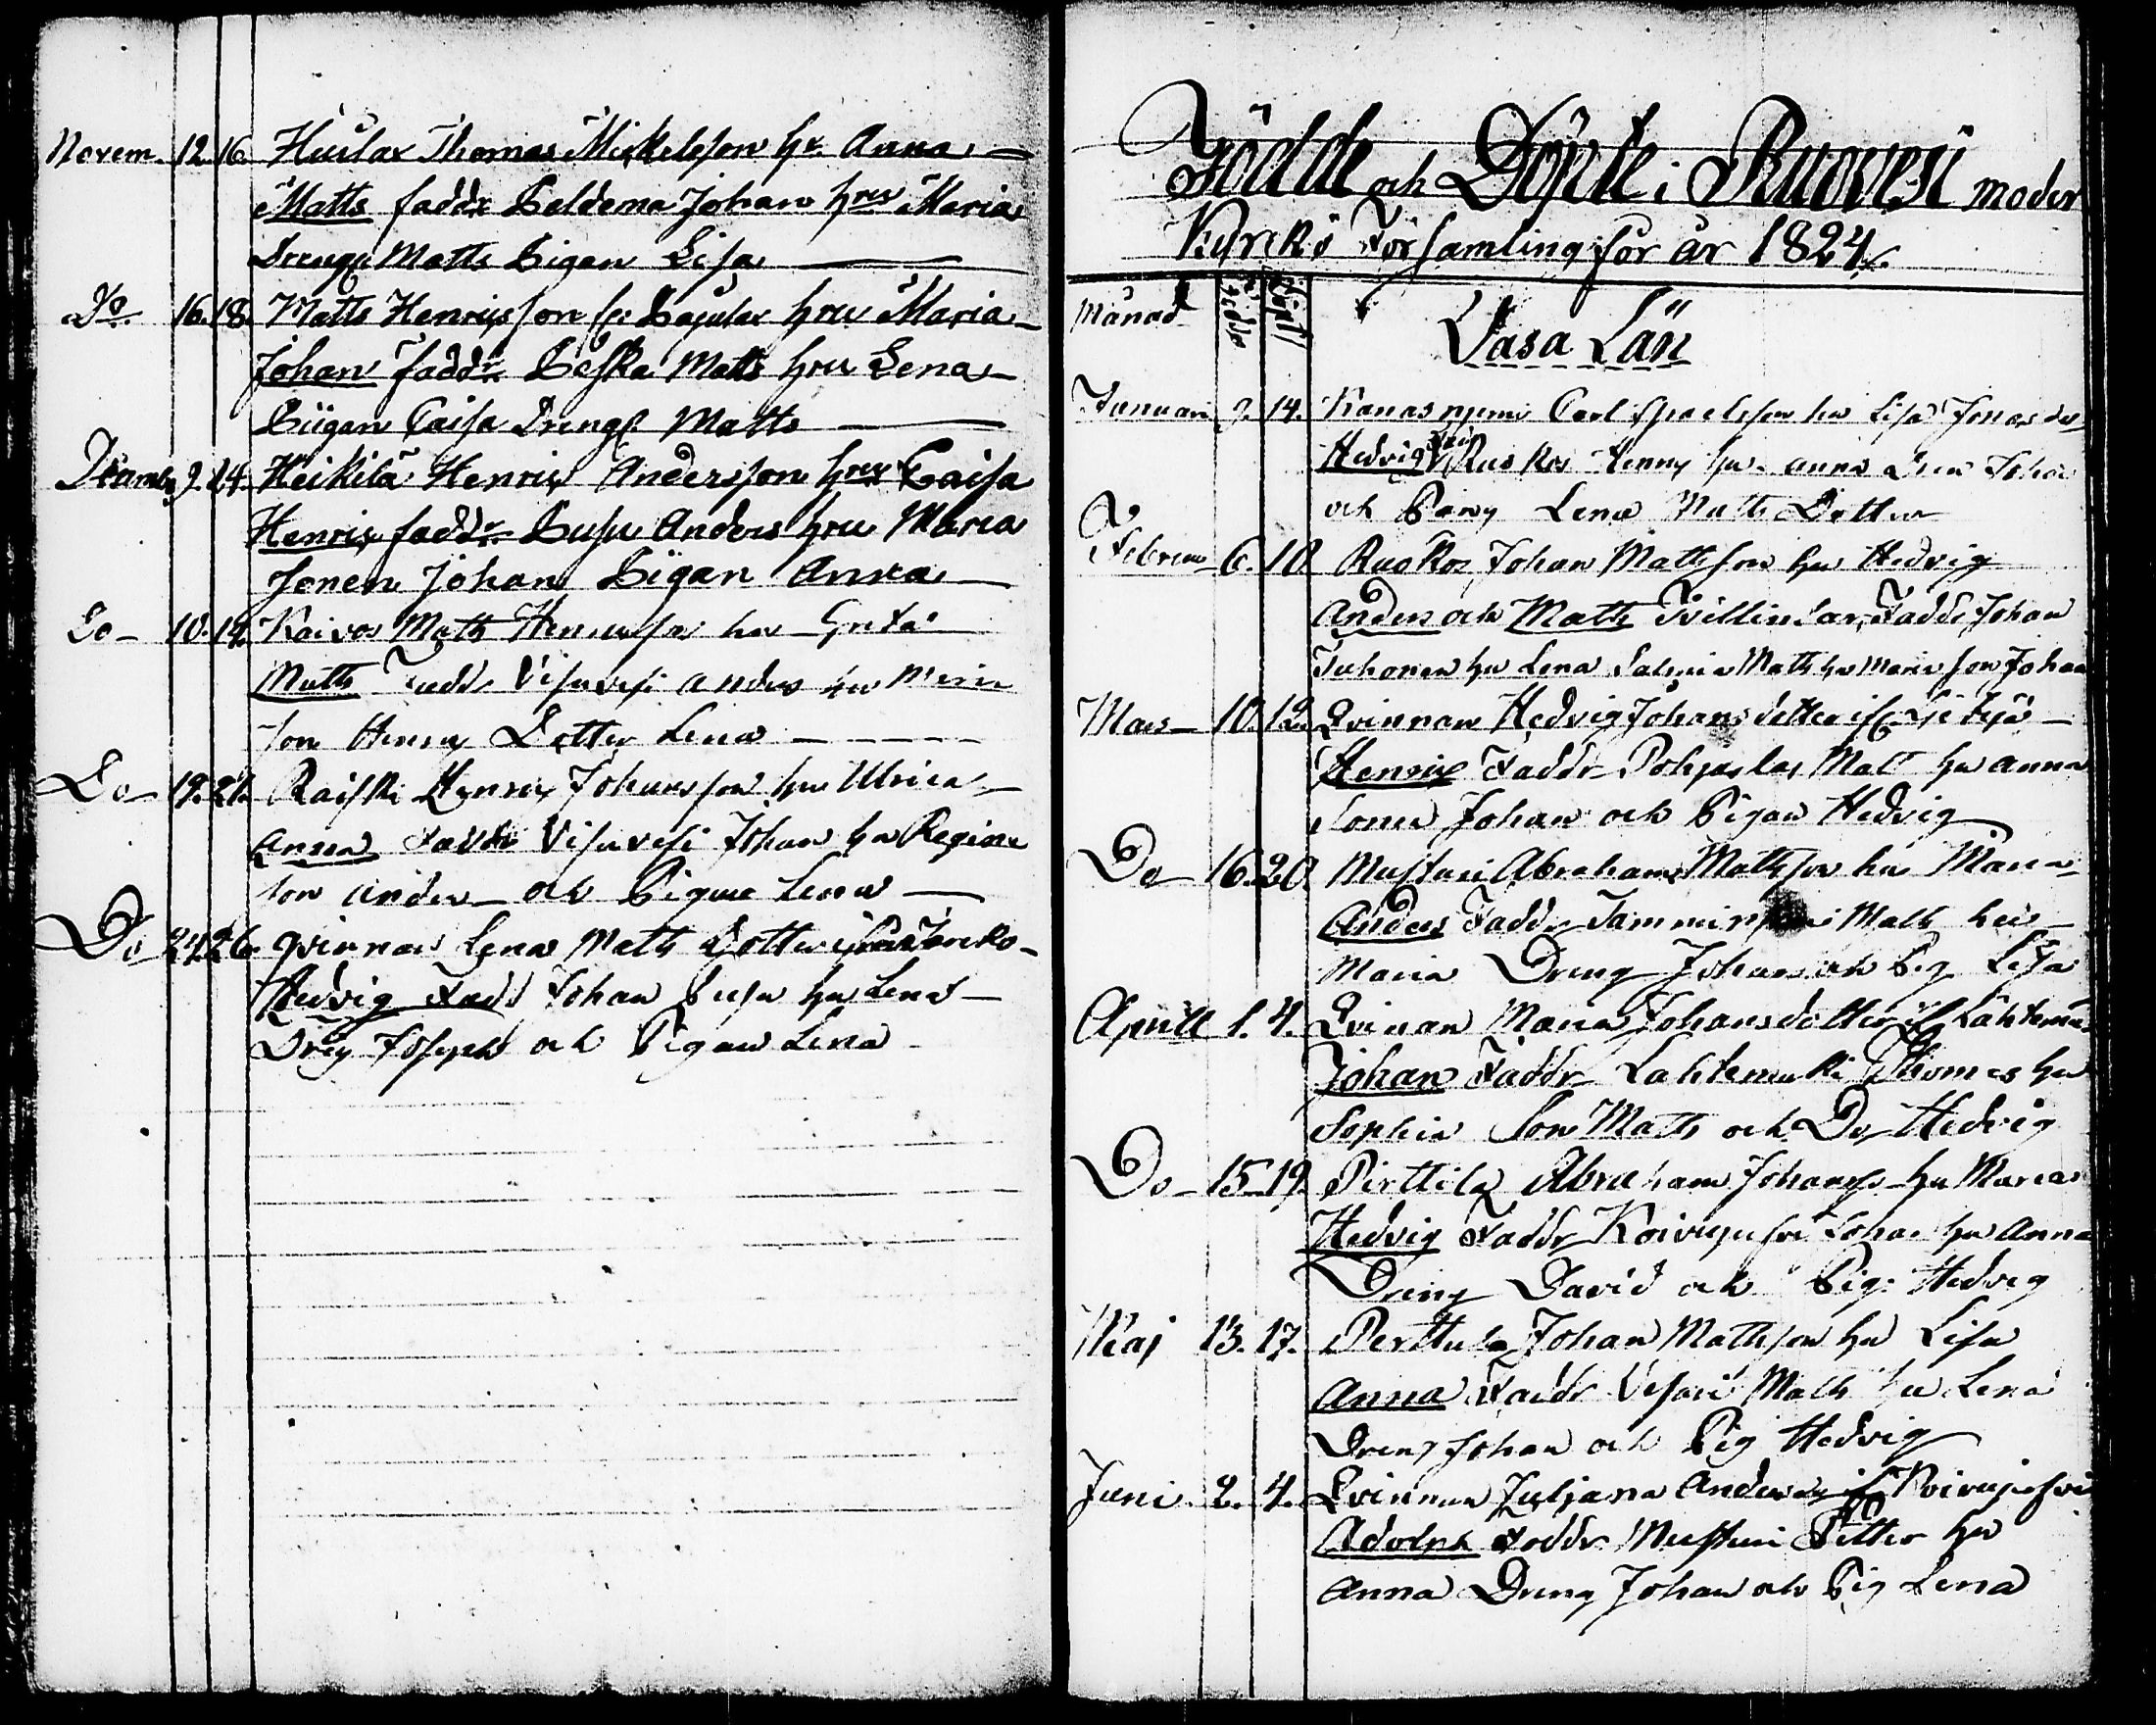 Novem. 12. 16. Huilax Thomas Mickelsson hr. Anna
Matts faddr Paldema Johan hru Maria
Drengn Matts Pigan Lisa
Do. 16. 18. Matts Henrigsson hru Maria
Johan faddr Peska Matts hru Lena
Piigan Caisa Drengn Matts
9. 14. Heikilä Henrig Andersson hru Caisa
Henrig faddr Pusu Anders hru Maria
Sonen Johan Pigan Anna
Do 10. 14. Kaivos Matts hru Greta
Matts Fadd Visuvesi Anders hru Maria
Son Henrig Dotter Lena
Do 19. 21. Raiski Henrig Johansson hru Ulrica
Anna Faddr Visuvesi Johan hu Regina
son Anders och Pigan Lena
Do 24. 26. qvinnan Lena Matts Dotter
Hedvig Fadd Johan Pusu hu Lena
Dreng Joseph och Pigan Lena
Födde och Döpte i Ruovesi moder
Kyrckö Församling för år 1824.
Månad födde döpt
Vasa Län
Januari 9. 14. Carl hu Lisa Jonas dr
Hedvig Ruskos Henrig hu Anna
och Pang Lena Matts Dotter
Februar 6. 10 Ruskos Johan Mattsson hu Hedvig
Anders och Matts Tvillingar, Fadd Johan
Juhonen hu Lena Salmia Matts hu Maria son Johan
Mars 10. 12. Qvinnan Hedvig Johans dotter
Henrig Faddr Pohjaslax Matt hu Anna
Sonen Johan och Pigan Hedvig
Do 16. 20. Mustari Abraham Mattsson hu Maria
Anders Faddr Matts hu
Maria Dreng Johan och Pig Lisa
Aprill 1. 4. Qvinan Maria Johansdotter if
Johan Faddr Lahtemäki Thomas hu
Sophia Son Matts och Do Hedvig
Do 15 19. Pirttila Abraham Johanss hu Maria
Hedvig Faddr Koivujusva Johan hu Anna
Dreng David och Pig. Hedvig
Maj 13. 17. Perttula Johan Mattsson hu Lisa
Anna Faddr Matts hu Lena
Dreng Johan och Pig Hedvig
Juni 2. 4. Qvinnan Juljana Anders
Adolph Faddr Mustari Petter hu
Anna Dreng Johan och Pig Lena